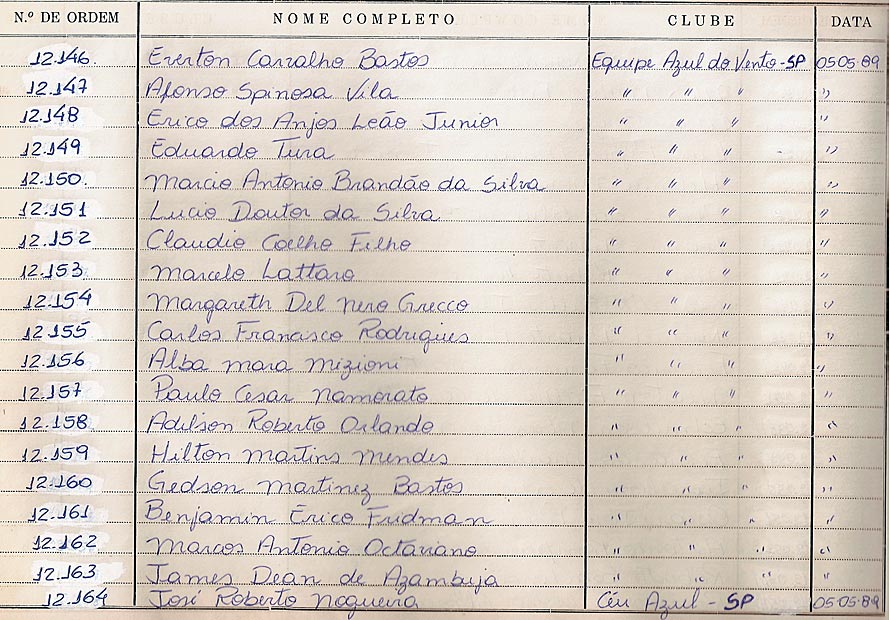 N.º DE ORDEM NOME COMPLETO CLUBE DATA
12.146 Everton Carvalho Bastos Equipe Azul do Vento-SP 05.05.89
12.147 Afonso Spinosa Vila " " " "
12.148 Erico dos Anjos Leão Junior " " " "
12.149 Eduardo Tura " " " "
12.150. Marcio Antonio Brandão da Silva " " " "
12.151 Lucio Doutor da Silva " " " "
12.152 Claudio Coelho Filho " " " "
12.153 Marcelo Lattaro " " " "
12.154 Margareth Del Nero Grecco " " " "
12.155 Carlos Francisco Rodrigues " " " "
12.156 Alba Mara Mizioni " " " "
12.157 Paulo Cesar Namorato " " " "
12.158 Adilson Roberto Orlando " " " "
12.159 Hilton Martins Mendes " " " "
12.160 Gedson Martinez Bastos " " " "
12.161 Benjamin Erico Fridman " " " "
12.162 Marcos Antonio Octaviano " " " "
12.163 James Dean de Azambuja " " " "
12.164 José Roberto Nogueira Céu Azul - SP 05.05.89